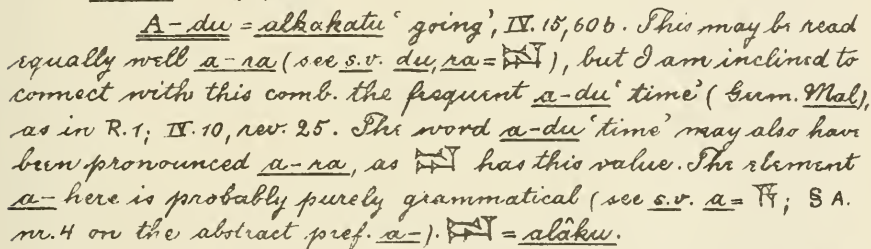 A-du = alkakatu ‘going’, IV. 15, 60b. This may be read
equally well a-ra (see s.v. du, ra = 𒁺), but I am inclined to
connect with this comb. the frequent a-du ‘time’ (Germ. Mal),
as in R. 1; IV. 10, rev. 25. The word a-du ‘time’ may also have
been pronounced a-ra, as 𒁺 has this value. The element
a- here is probably purely grammatical (see s.v. a = 𒀀; § A.
nr. 4 on the abstract pref. a-). 𒁺 = alâku.